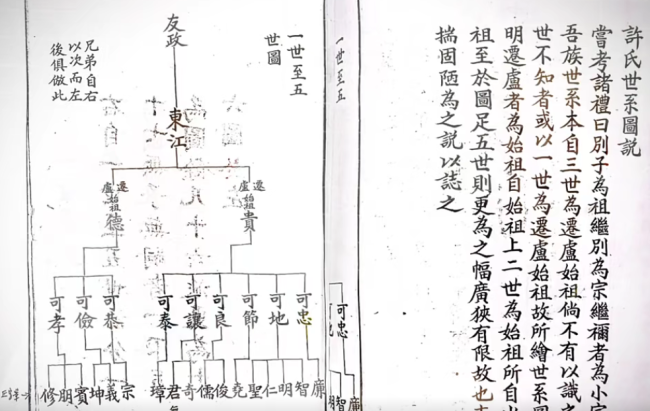 許氏世系圖說
嘗考諸禮曰別子為祖繼別為宗繼禰者為小宗
吾族世系本自三世為遷盧始祖倘不有以識之
世不知者或以一世為遷盧始祖故所繪世系圖
明遷盧者為始祖自始祖上二世為始祖所自出
祖至於圖足五世則更為之幅廣狹有限故也
揣固陋為之說以誌之
一世至五
可忠
可地
廉
智
明
一世至五
世圖
兄弟自右
以次而左
後俱倣此
友政
東江
遷盧始祖 貴
遷盧始祖 德
可忠
可地
可節
可良
可讓
可泰
可恭
可儉
可孝
廉 智 明 仁 聖 堯 俊 儒 奇 君 璋
宗 義 坤 賓 朋 修